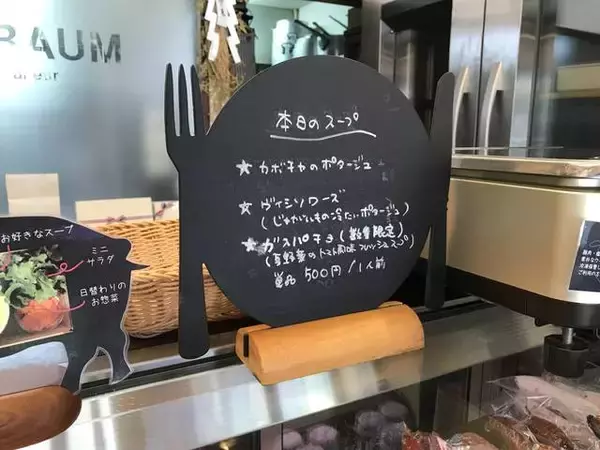 RAUM
本日のスープ
★ カボチャのポタージュ
★ ヴィシソワーズ
(じゃがいもの冷たいポタージュ)
★ ガスパチョ(数量限定)
(夏野菜のトマト風味フレッシュスープ)
単品 500円/1人前
お好きなスープ
ミニ
サラダ
日替わりの
お惣菜